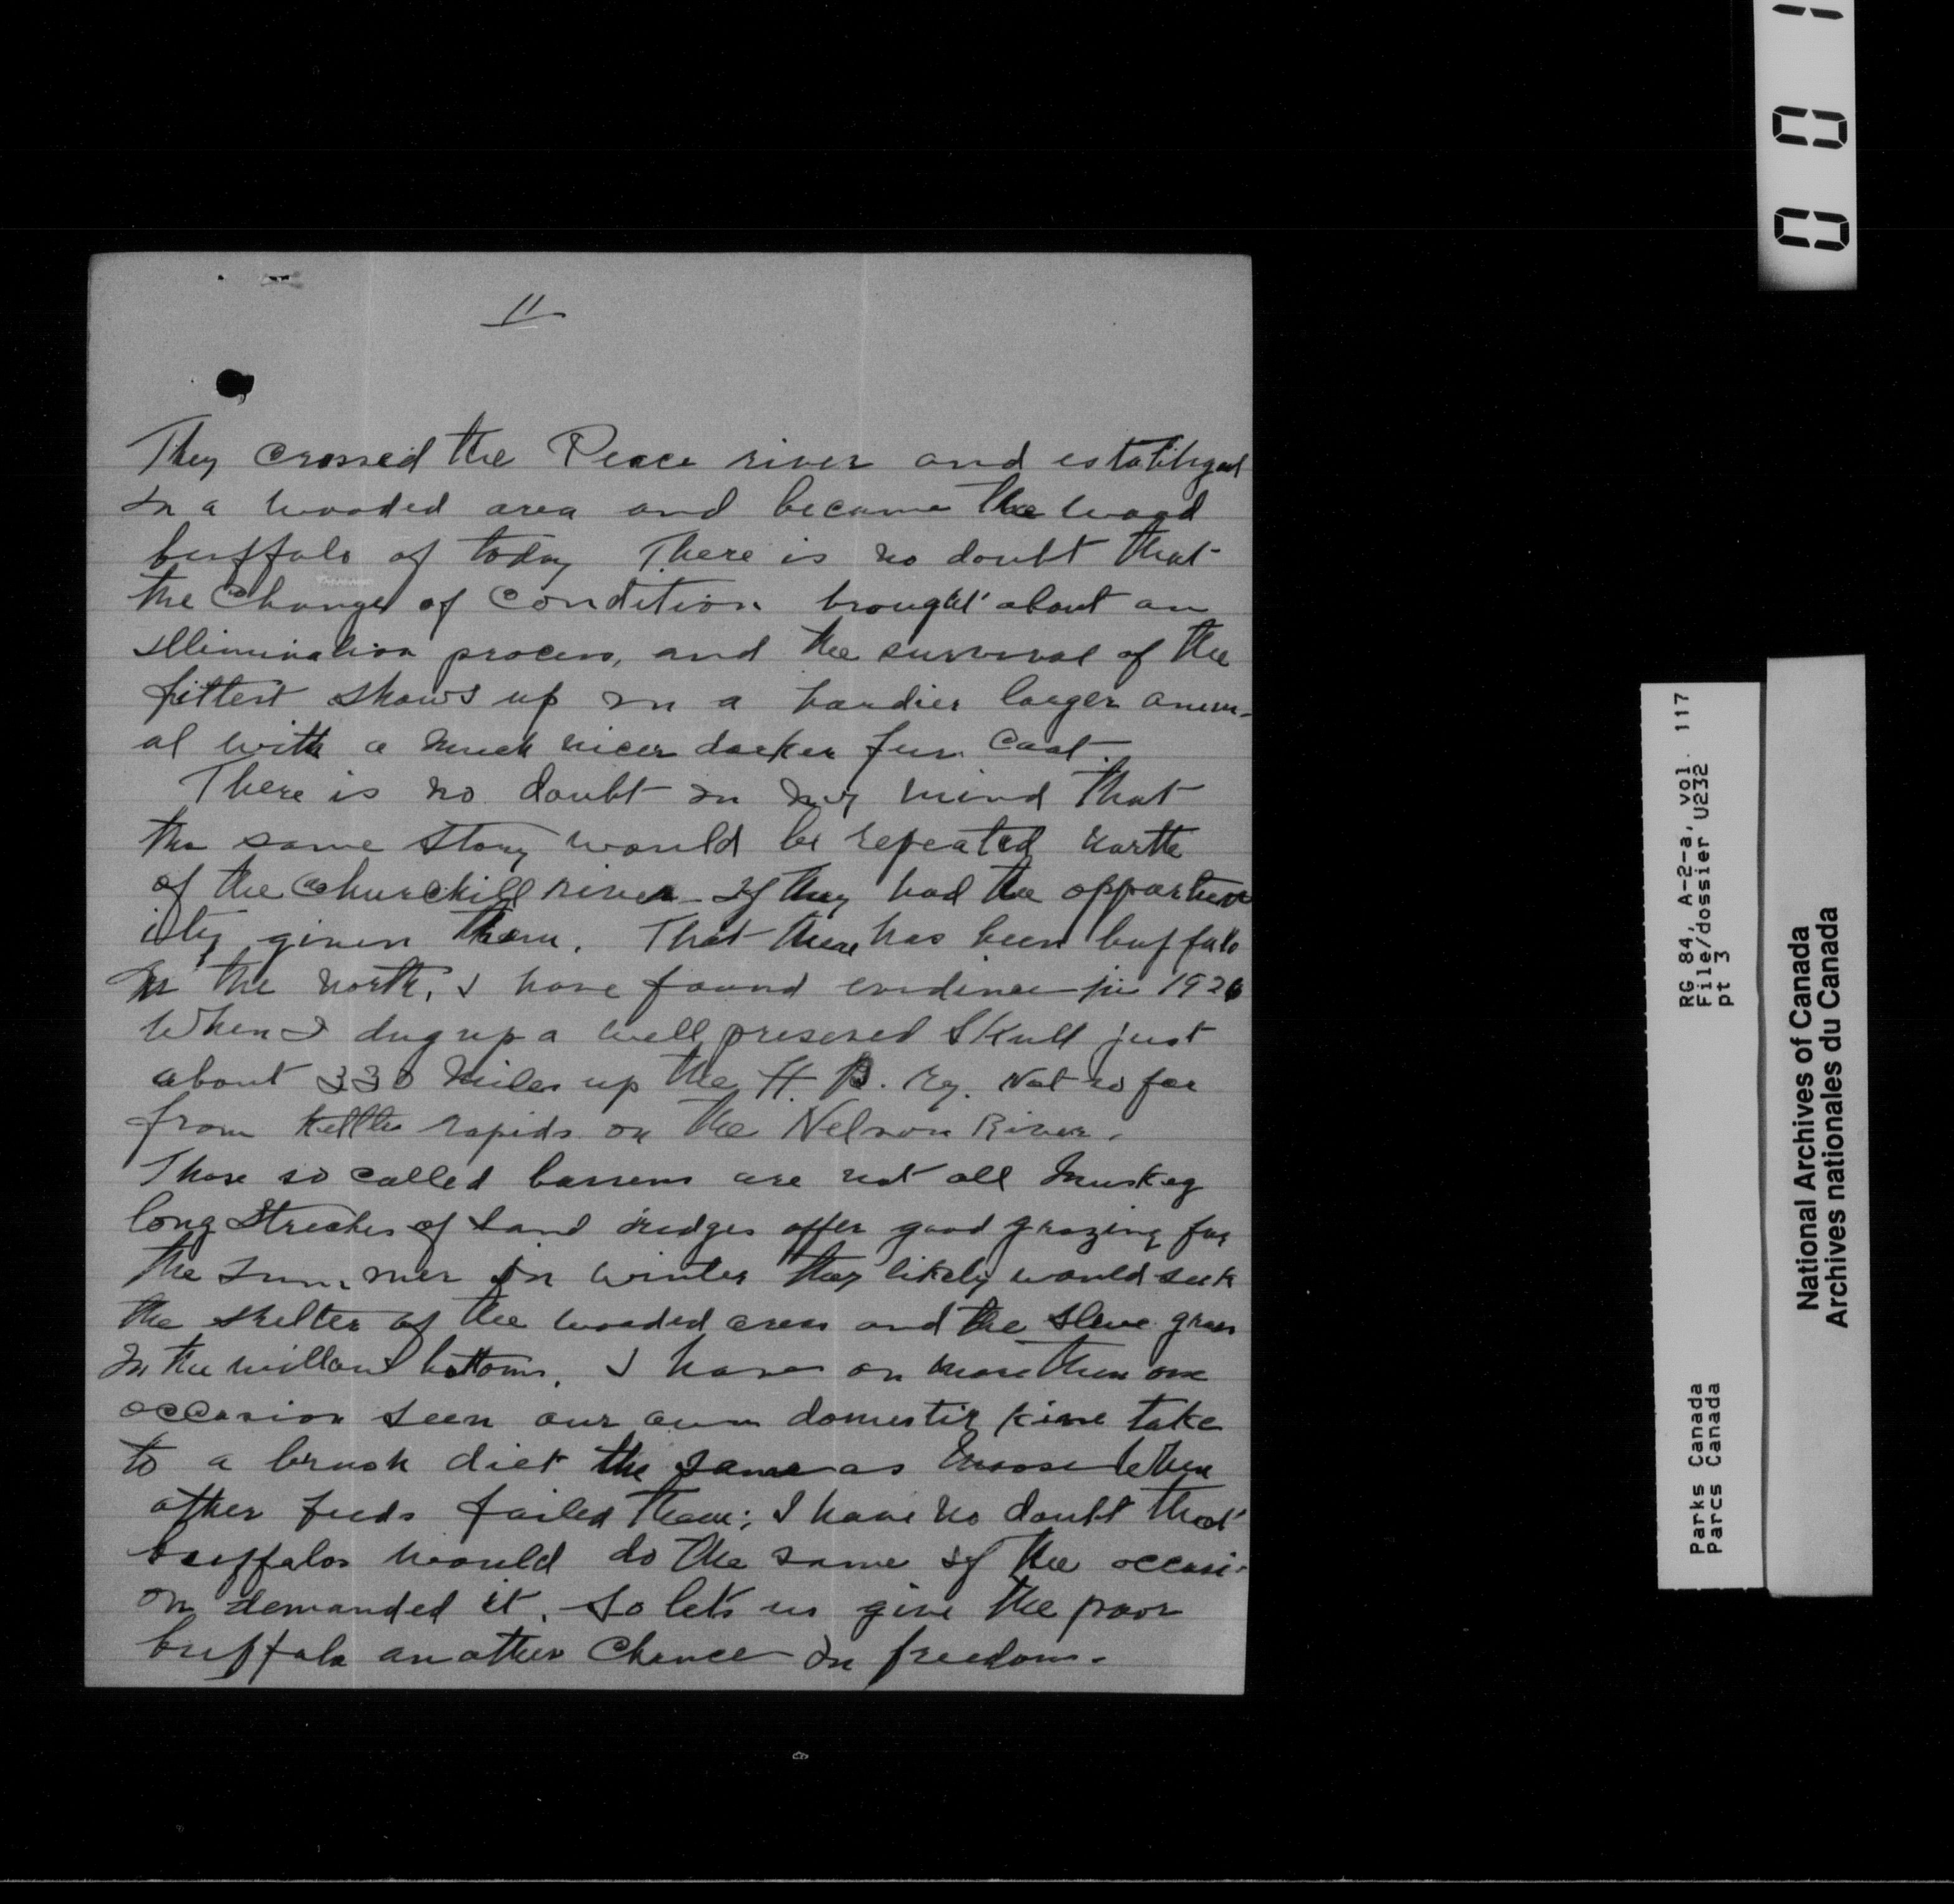 11
They crossed the Peace river and establisged
In a wooded area and became the wood
buffalo of today There is no doubt that
the Change of Condition brought about an
illimination process, and the survival of the
fittest shows up in a hardier larger anim-
al with a much nicer darker fur Coat.
There is no doubt in my mind that
the same story would be repeated north
of the Churchill river - If they had the opportun
ity given them. That there has been buffalo
In the north, I have found evidence in 1926
When I dug up a well preserved Skull just
about 330 miles up the H. B. Ry. Not so far
from Kettle rapids on the Nelson River.
Those so called barrens are not all Muskeg
long Streches of land ridges offer good grazing for
the Summer In winter they likely would seek
the shelter of the wooded areas and the grass
In the willow bottoms. I have on more then one
occasion seen our own domestic kine take
to a brush diet the same as Moose When
other feeds failed them; I have no doubt that
buffalos would do the same if the occasi-
on demanded it. So let's us give the poor
buffalo another Chance In freedom.
0 0 1
RG 84, A-2-a, vol. 117
File/dossier U232
pt 3
Parks Canada
Parcs Canada
National Archives of Canada
Archives nationales du Canada